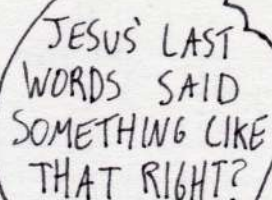 JESUS' LAST
WORDS SAID
SOMETHING LIKE
THAT RIGHT?